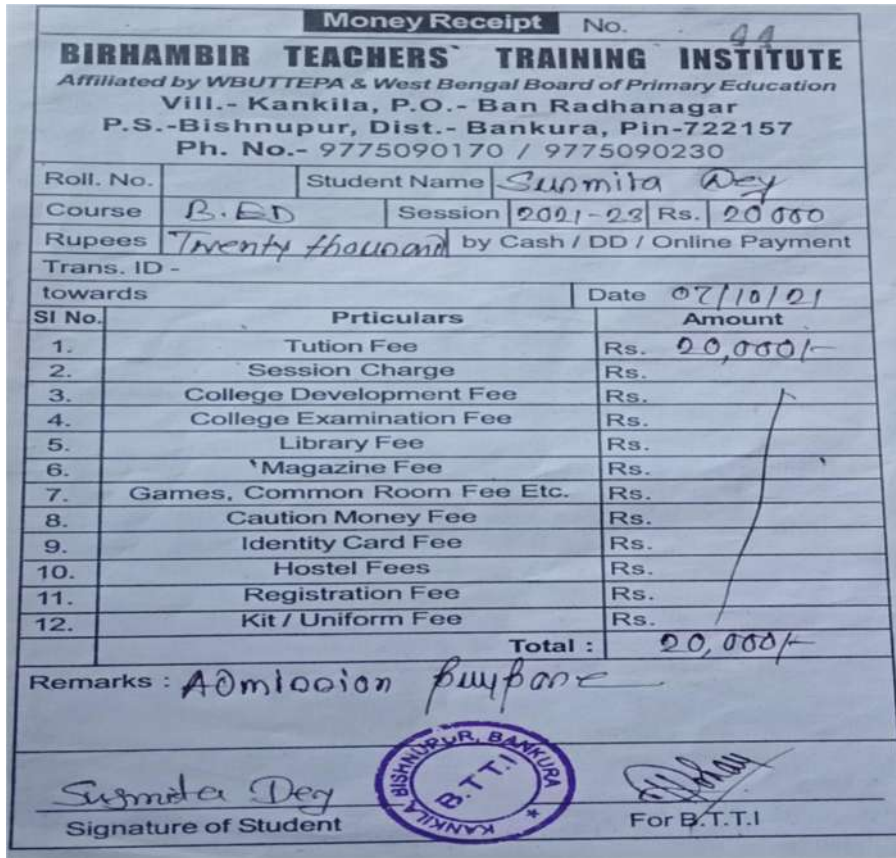 Money Receipt No. 44
BIRHAMBIR TEACHERS` TRAINING INSTITUTE
Affiliated by WBUTTEPA & West Bengal Board of Primary Education
Vill.- Kankila, P.O.- Ban Radhanagar
P.S.-Bishnupur, Dist.- Bankura, Pin-722157
Ph. No.- 9775090170 / 9775090230
Roll. No. Student Name Susmita Dey
Course B.ED Session 2021-23 Rs. 20000
Rupees Twenty thousand by Cash / DD / Online Payment
Trans. ID -
towards Date 07/10/21
Sl No. Prticulars Amount
1. Tution Fee Rs. 20,000/-
2. Session Charge Rs.
3. College Development Fee Rs.
4. College Examination Fee Rs.
5. Library Fee Rs.
6. Magazine Fee Rs.
7. Games, Common Room Fee Etc. Rs.
8. Caution Money Fee Rs.
9. Identity Card Fee Rs.
10. Hostel Fees Rs.
11. Registration Fee Rs.
12. Kit / Uniform Fee Rs.
Total : 20,000/-
Remarks : Admission purpose
KANKILA, BISHNUPUR, BANKURA
B.T.T.I
Susmita Dey
Signature of Student For B.T.T.I